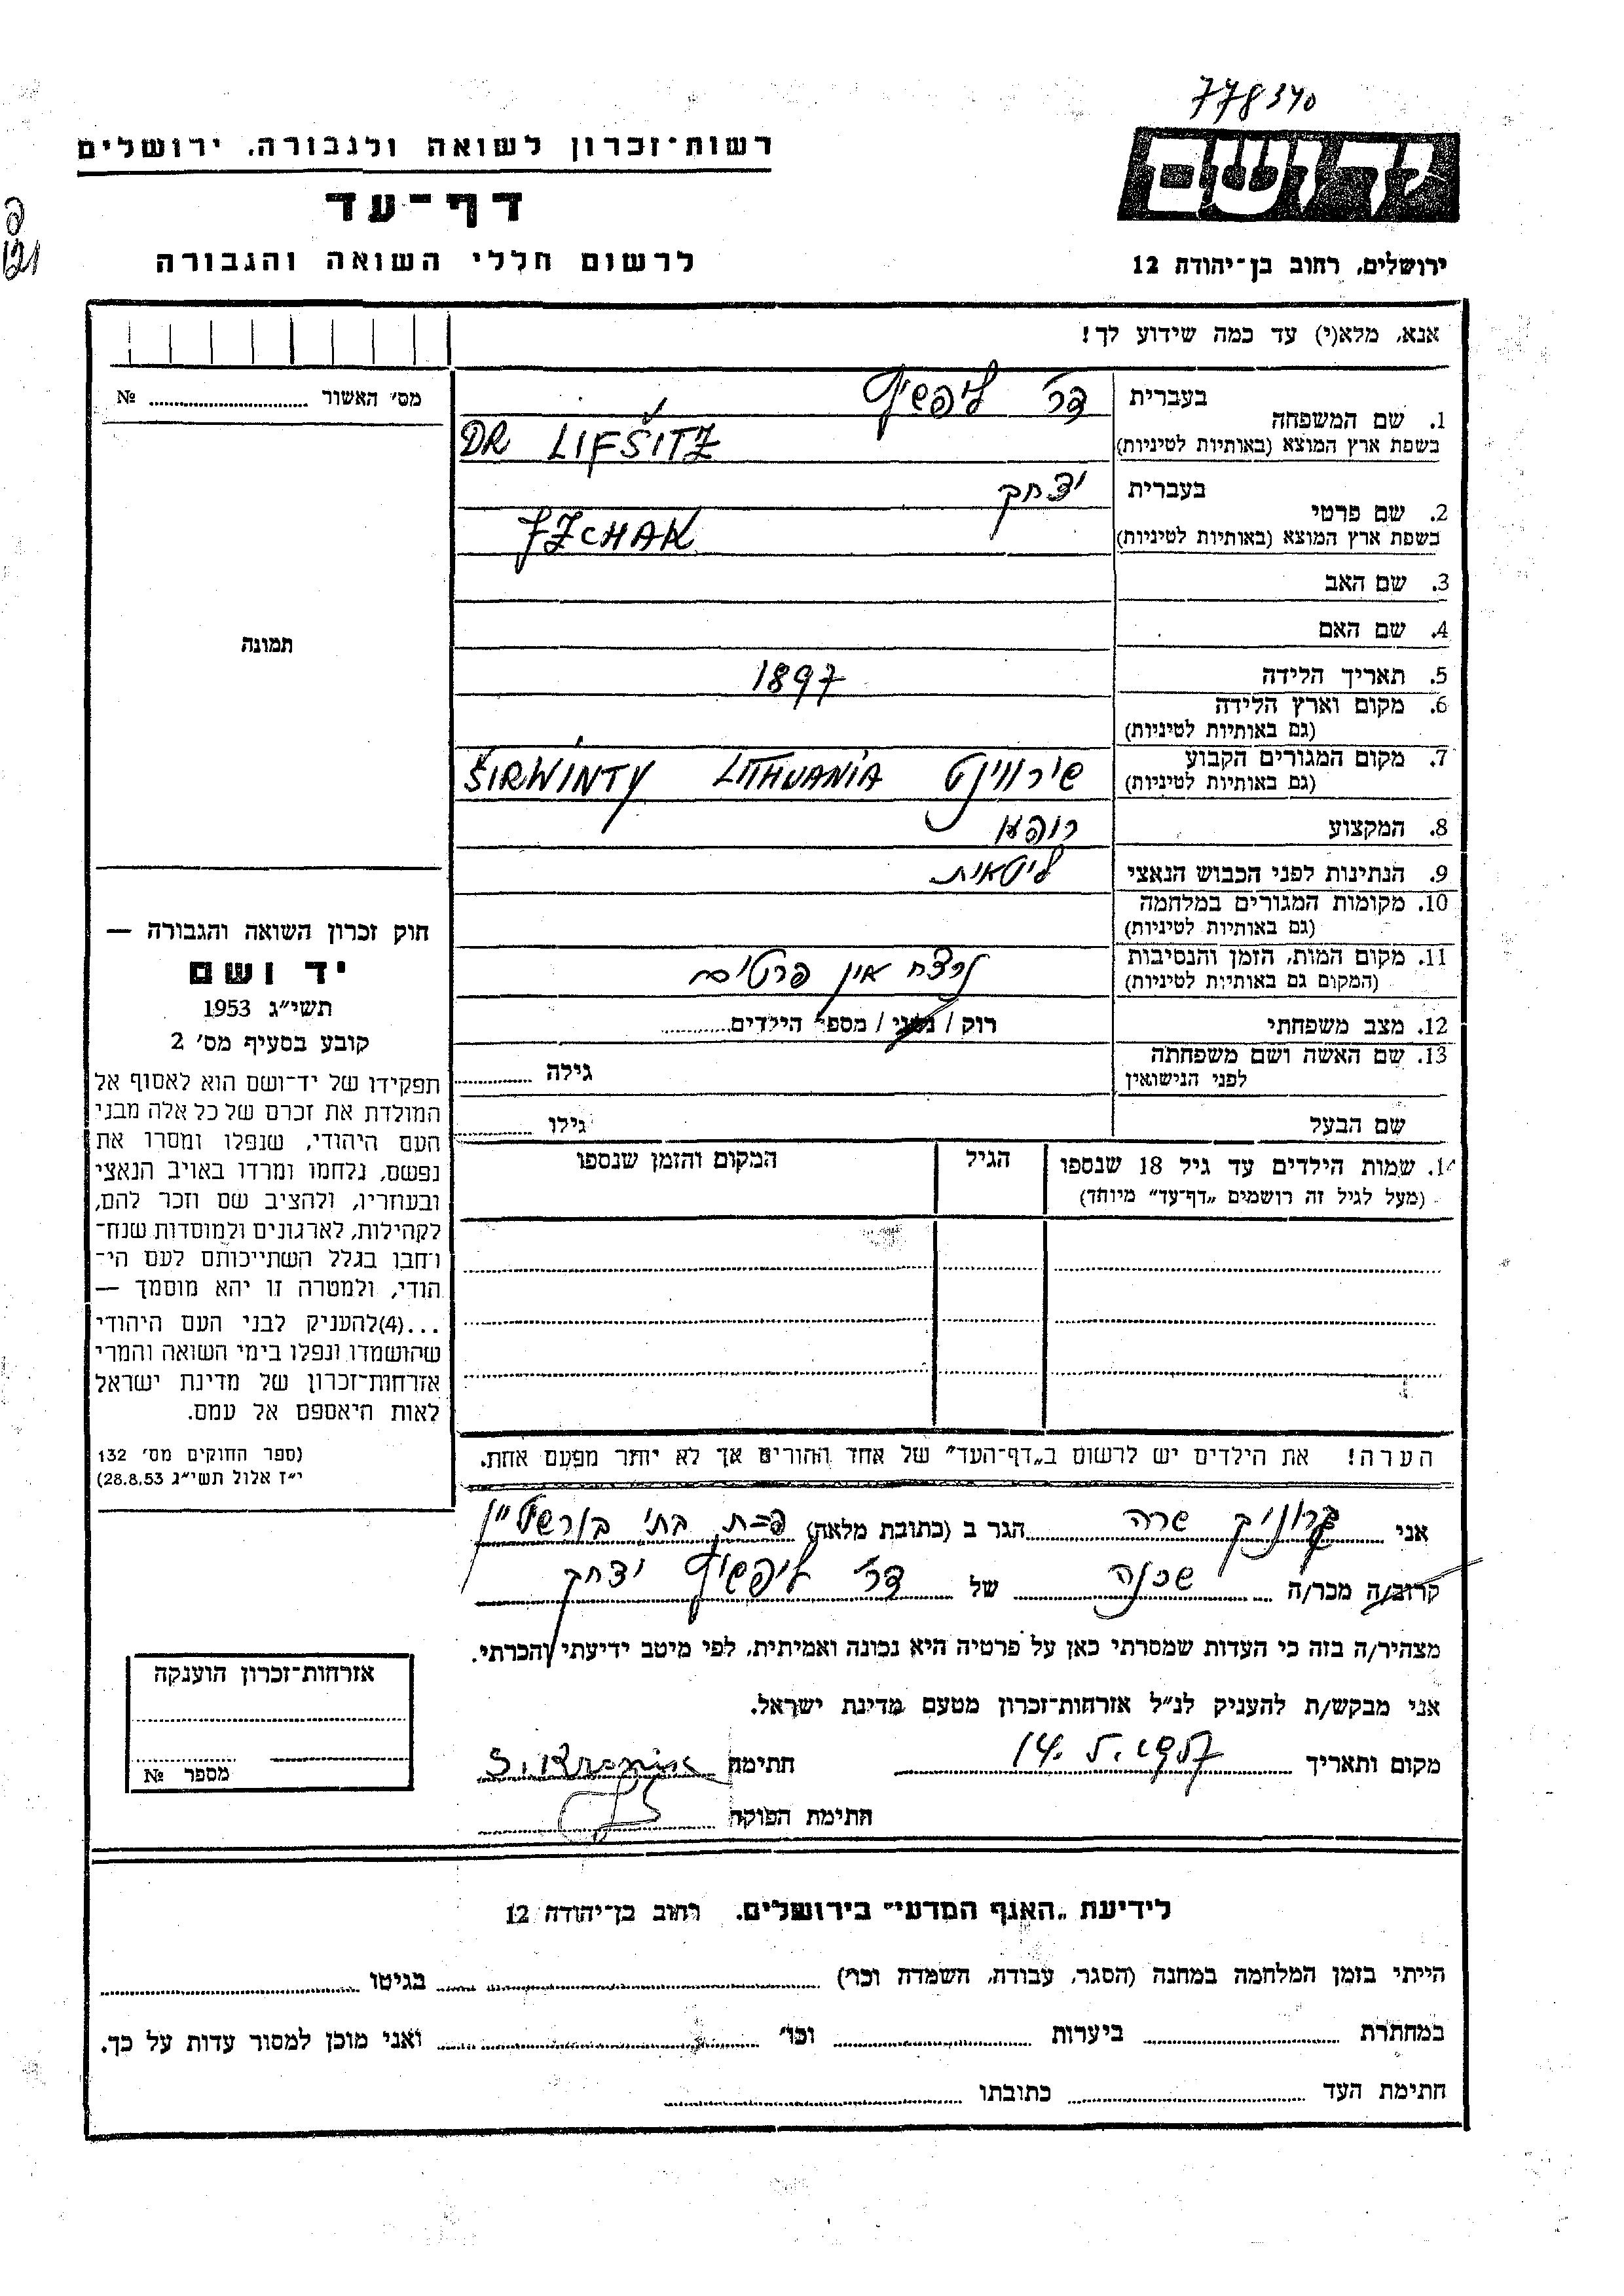 778340
רשות־זכרון לשואה ולגבורה, ירושלים
יד ושם
דף־עד
לרשום חללי השואה והגבורה
ירושלים, רחוב בן־יהודה 12
אנא, מלא(י) עד כמה שידוע לך!
מס׳ האשור № 
1. שם המשפחה בעברית דר׳ ליפשיץ
בשפת ארץ המוצא (באותיות לטיניות) DR LIFŠITZ
2. שם פרטי בעברית יצחק
בשפת ארץ המוצא (באותיות לטיניות) IZCHAK
3. שם האב
4. שם האם
תמונה
5. תאריך הלידה 1897
6. מקום וארץ הלידה
(גם באותיות לטיניות)
7. מקום המגורים הקבוע שירווינט LITHUANIA ŠIRWINTY
(גם באותיות לטיניות)
8. המקצוע רופא
9. הנתינות לפני הכבוש הנאצי ליטאית
10. מקומות המגורים במלחמה
(גם באותיות לטיניות)
11. מקום המות, הזמן והנסיבות נרצח אין פרטים
(המקום גם באותיות לטיניות)
12. מצב משפחתי רוק / נשוי / מספר הילדים
13. שם האשה ושם משפחתה גילה
לפני הנישואין
שם הבעל גילו
14. שמות הילדים עד גיל 18 שנספו הגיל המקום והזמן שנספו
(מעל לגיל זה רושמים „דף־עד״ מיוחד)
הערה! את הילדים יש לרשום ב„דף־העד״ של אחד ההורים אך לא יותר מפעם אחת.
חוק זכרון השואה והגבורה —
יד ושם
תשי״ג 1953
קובע בסעיף מס׳ 2
תפקידו של יד־ושם הוא לאסוף אל
המולדת את זכרם של כל אלה מבני
העם היהודי, שנפלו ומסרו את
נפשם, נלחמו ומרדו באויב הנאצי
ובעוזריו, ולהציב שם וזכר להם,
לקהילות, לארגונים ולמוסדות שנח־
רבו בגלל השתייכותם לעם הי־
הודי, ולמטרה זו יהא מוסמך —
...(4)להעניק לבני העם היהודי
שהושמדו ונפלו בימי השואה והמרי
אזרחות־זכרון של מדינת ישראל
לאות היאספם אל עמם.
(ספר החוקים מס׳ 132
י״ז אלול תשי״ג 28.8.53)
אני קרוניק שרה הגר ב (כתובת מלאה) פ־ת, בתי בורשטיין
קרוב/ה מכר/ה שכנה של דר׳ ליפשיץ יצחק
מצהיר/ה בזה כי העדות שמסרתי כאן על פרטיה היא נכונה ואמיתית, לפי מיטב ידיעתי והכרתי.
אני מבקש/ת להעניק לנ״ל אזרחות־זכרון מטעם מדינת ישראל.
מקום ותאריך 14.5.1957 חתימה S. Kronik
חתימת הפוקד
אזרחות־זכרון הוענקה
מספר №
לידיעת „האגף המדעי״ בירושלים, רחוב בן־יהודה 12
הייתי בזמן המלחמה במחנה (הסגר, עבודה, השמדה וכו׳) בגיטו
במחתרת ביערות וכו׳ ואני מוכן למסור עדות על כך.
חתימת העד כתובתו